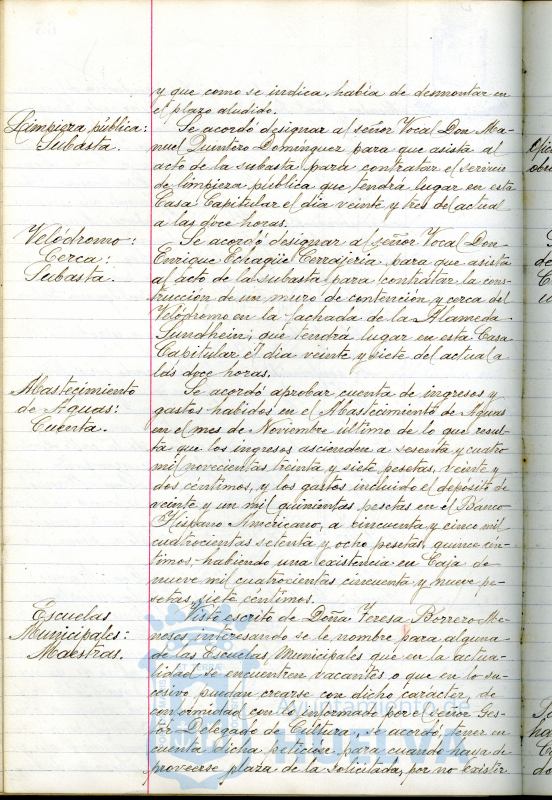 y que como se indica, habia de desmontar en
el plazo aludido.
Limpieza pública:
Subasta.
Se acordó designar al señor Vocal Don Ma-
nuel Quintero Dominguez para que asista al
acto de la subasta para contratar el servicio
de limpieza pública que tendrá lugar en esta
Casa Capitular el dia veinte y tres del actual
a las doce horas.
Velódromo:
Cerca:
Subasta.
Se acordó designar al señor Vocal Don
Enrique Echagüe Cerrajeria para que asista
al acto de la subasta para contratar la cons-
trucción de un muro de contención y cerca del
Velódromo en la fachada de la Alameda
Sundhein, que tendrá lugar en esta Casa
Capitular, el dia veinte y siete del actual a
las doce horas.
Abastecimiento
de Aguas:
Cuenta.
Se acordó aprobar cuenta de ingresos y
gastos habidos en el Abastecimiento de Aguas
en el mes de Noviembre último de lo que resul-
ta que los ingresos ascienden a sesenta y cuatro
mil novecientas treinta y siete pesetas, veinte y
dos céntimos, y los gastos incluido el depósito de
veinte y un mil quinientas pesetas en el Banco
Hispano Americano, a cincuenta y cinco mil
cuatrocientas setenta y ocho pesetas, quince cén-
timos, habiendo una existencia en Caja de
nueve mil cuatrocientas cincuenta y nueve pe-
setas, siete céntimos.
Escuelas
Municipales:
Maestras.
Visto escrito de Doña Teresa Borrero Me-
neses interesando se le nombre para alguna
de las Escuelas Municipales que en la actua-
lidad se encuentren vacantes o que en lo su-
cesivo puedan crearse con dicho carácter, de
conformidad con lo informado por el Señor Ges-
tor Delegado de Cultura, se acordó, tener en
cuenta dicha peticion para cuando haya de
proveerse plaza de la solicitada, por no existir
Ayuntamiento de
HUELVA